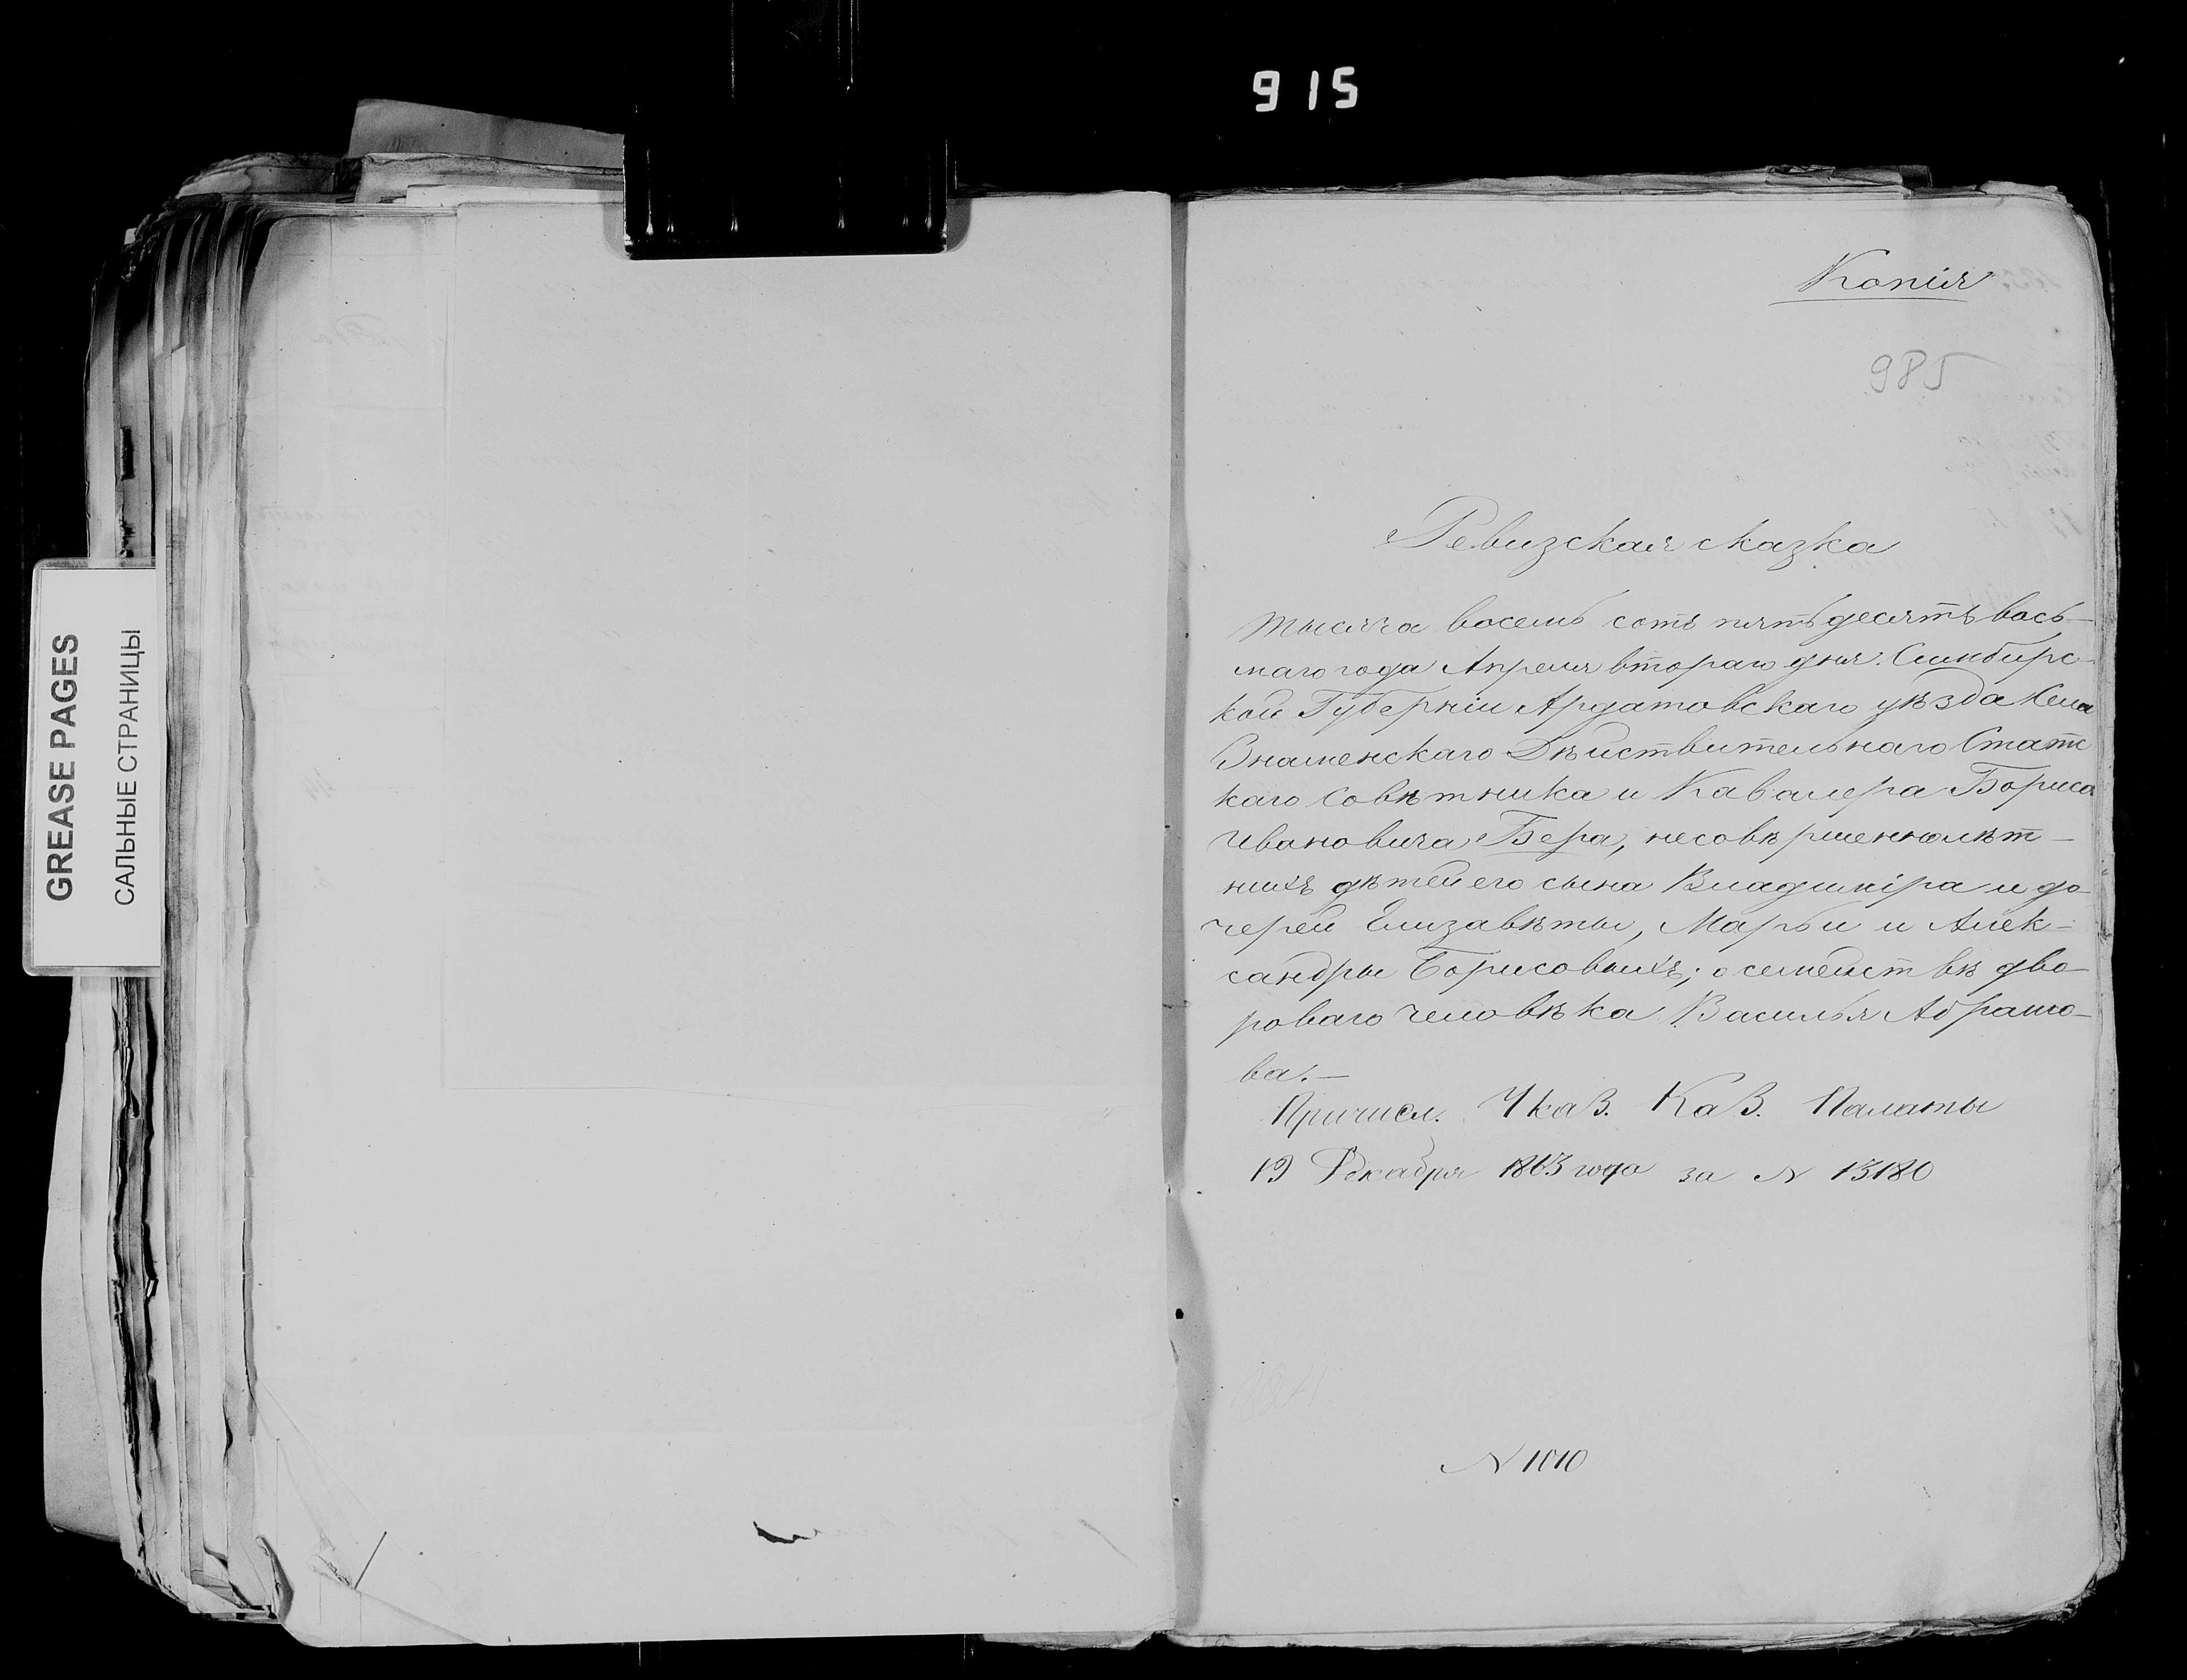 915
GREASE PAGES
САЛЬНЫЕ СТРАНИЦЫ
Копія
985
Ревизская сказка
тысяча восемь сотъ пятьдесятъ вось-
маго года Апреля втораго дня. Симбирс-
кой Губерніи Ардатовскаго уѣзда села
Знаменскаго Дѣйствительнаго Статс
каго Совѣтника и Кавалера Бориса
Ивановича Бера, несовѣршеннолѣт-
нихъ дѣтей его сына Владиміра и до-
черей Елизавѣты, Марьи и Алек-
сандры Борисовыхъ; о семействѣ дво-
роваго человѣка Василья Абрамо-
ва.-
Причисл. Указ. Каз. Палаты
19 Декабря 1863 года за N 13180
N 1010